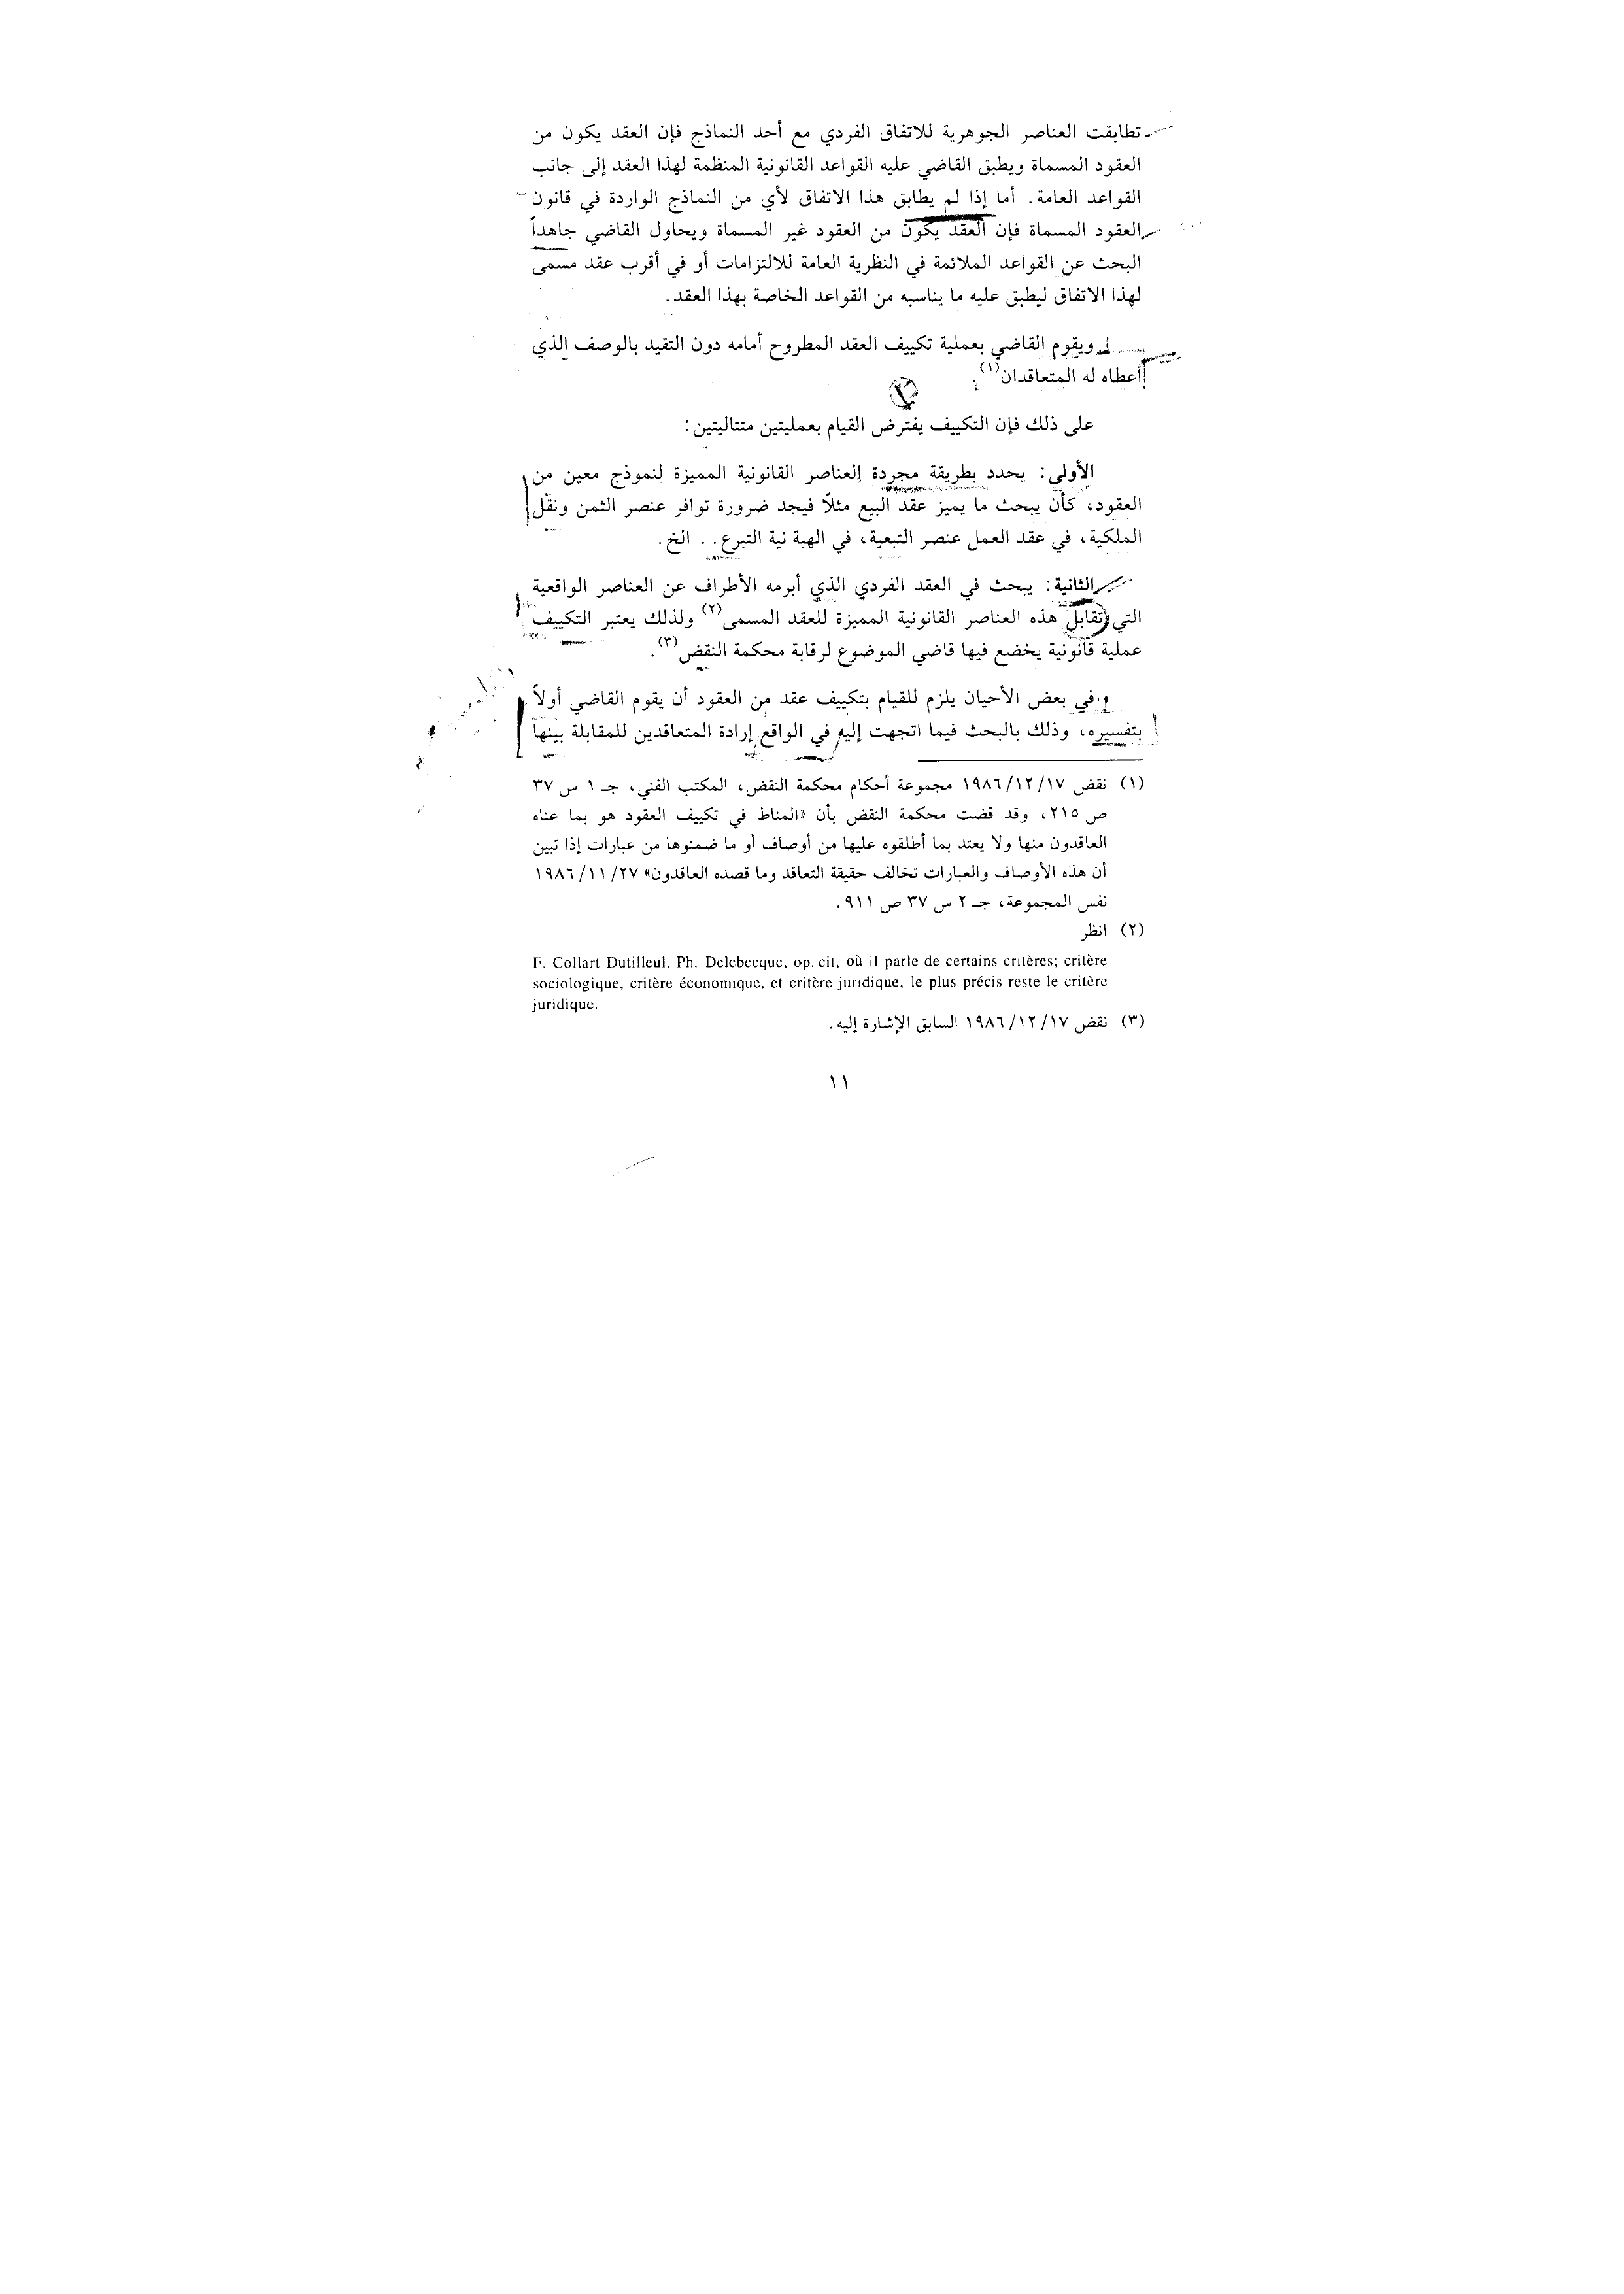 تطابقت العناصر الجوهرية للاتفاق الفردي مع أحد النماذج فإن العقد يكون من
العقود المسماة ويطبق القاضي عليه القواعد القانونية المنظمة لهذا العقد إلى جانب
القواعد العامة. أما إذا لم يطابق هذا الاتفاق لأي من النماذج الواردة في قانون
العقود المسماة فإن العقد يكون من العقود غير المسماة ويحاول القاضي جاهداً
البحث عن القواعد الملائمة في النظرية العامة للالتزامات أو في أقرب عقد مسمى
لهذا الاتفاق ليطبق عليه ما يناسبه من القواعد الخاصة بهذا العقد.
ويقوم القاضي بعملية تكييف العقد المطروح أمامه دون التقيد بالوصف الذي
أعطاه له المتعاقدان(١).
على ذلك فإن التكييف يفترض القيام بعمليتين متتاليتين:
الأولى: يحدد بطريقة مجردة العناصر القانونية المميزة لنموذج معين من
العقود، كأن يبحث ما يميز عقد البيع مثلاً فيجد ضرورة توافر عنصر الثمن ونقل
الملكية، في عقد العمل عنصر التبعية، في الهبة نية التبرع.. الخ.
الثانية: يبحث في العقد الفردي الذي أبرمه الأطراف عن العناصر الواقعية
التي تقابل هذه العناصر القانونية المميزة للعقد المسمى(٢) ولذلك يعتبر التكييف
عملية قانونية يخضع فيها قاضي الموضوع لرقابة محكمة النقض(٣).
وفي بعض الأحيان يلزم للقيام بتكييف عقد من العقود أن يقوم القاضي أولاً
بتفسيره، وذلك بالبحث فيما اتجهت إليه في الواقع إرادة المتعاقدين للمقابلة بينها
(١) نقض ١٩٨٦/١٢/١٧ مجموعة أحكام محكمة النقض، المكتب الفني، جـ ١ س ٣٧
ص ٢١٥، وقد قضت محكمة النقض بأن «المناط في تكييف العقود هو بما عناه
العاقدون منها ولا يعتد بما أطلقوه عليها من أوصاف أو ما ضمنوها من عبارات إذا تبين
أن هذه الأوصاف والعبارات تخالف حقيقة التعاقد وما قصده العاقدون» ١٩٨٦/١١/٢٧
نفس المجموعة، جـ ٢ س ٣٧ ص ٩١١.
(٢) انظر
F. Collart Dutilleul, Ph. Delebecque, op. cit, où il parle de certains critères; critère
sociologique, critère économique, et critère juridique, le plus précis reste le critère
juridique.
(٣) نقض ١٩٨٦/١٢/١٧ السابق الإشارة إليه.
١١